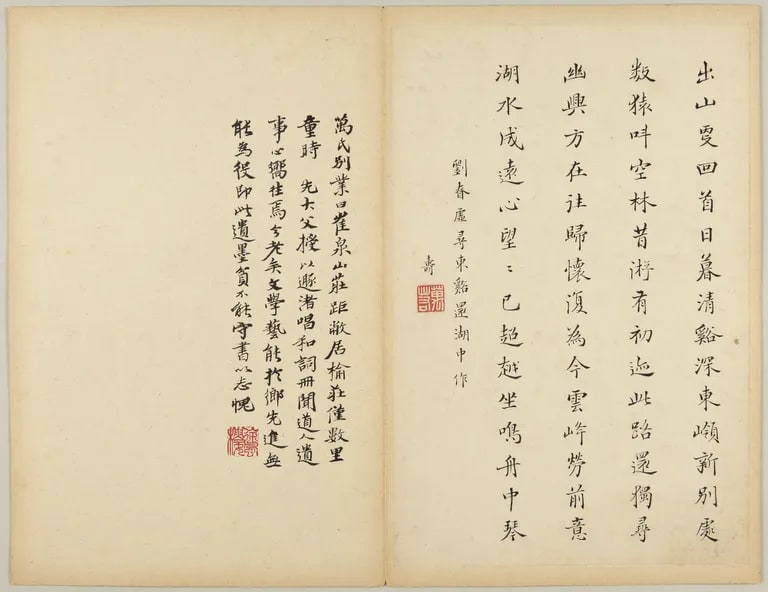 出山更回首日暮清谿深東嶺新別處
数猿叫空林昔游有初迹此路還獨尋
幽興方在往歸懷復為今雲峰勞前意
湖水成遠心望〻已超越坐鳴舟中琴
劉昚虛尋東谿還湖中作
壽
萬氏別業曰崔泉山莊距敝居榆莊僅数里
童時 先大父授以遯渚唱和詞冊聞道人遺
事心嚮往焉今老矣文學藝能於鄉先進無
能為役即此遺墨負不能守書以志愧